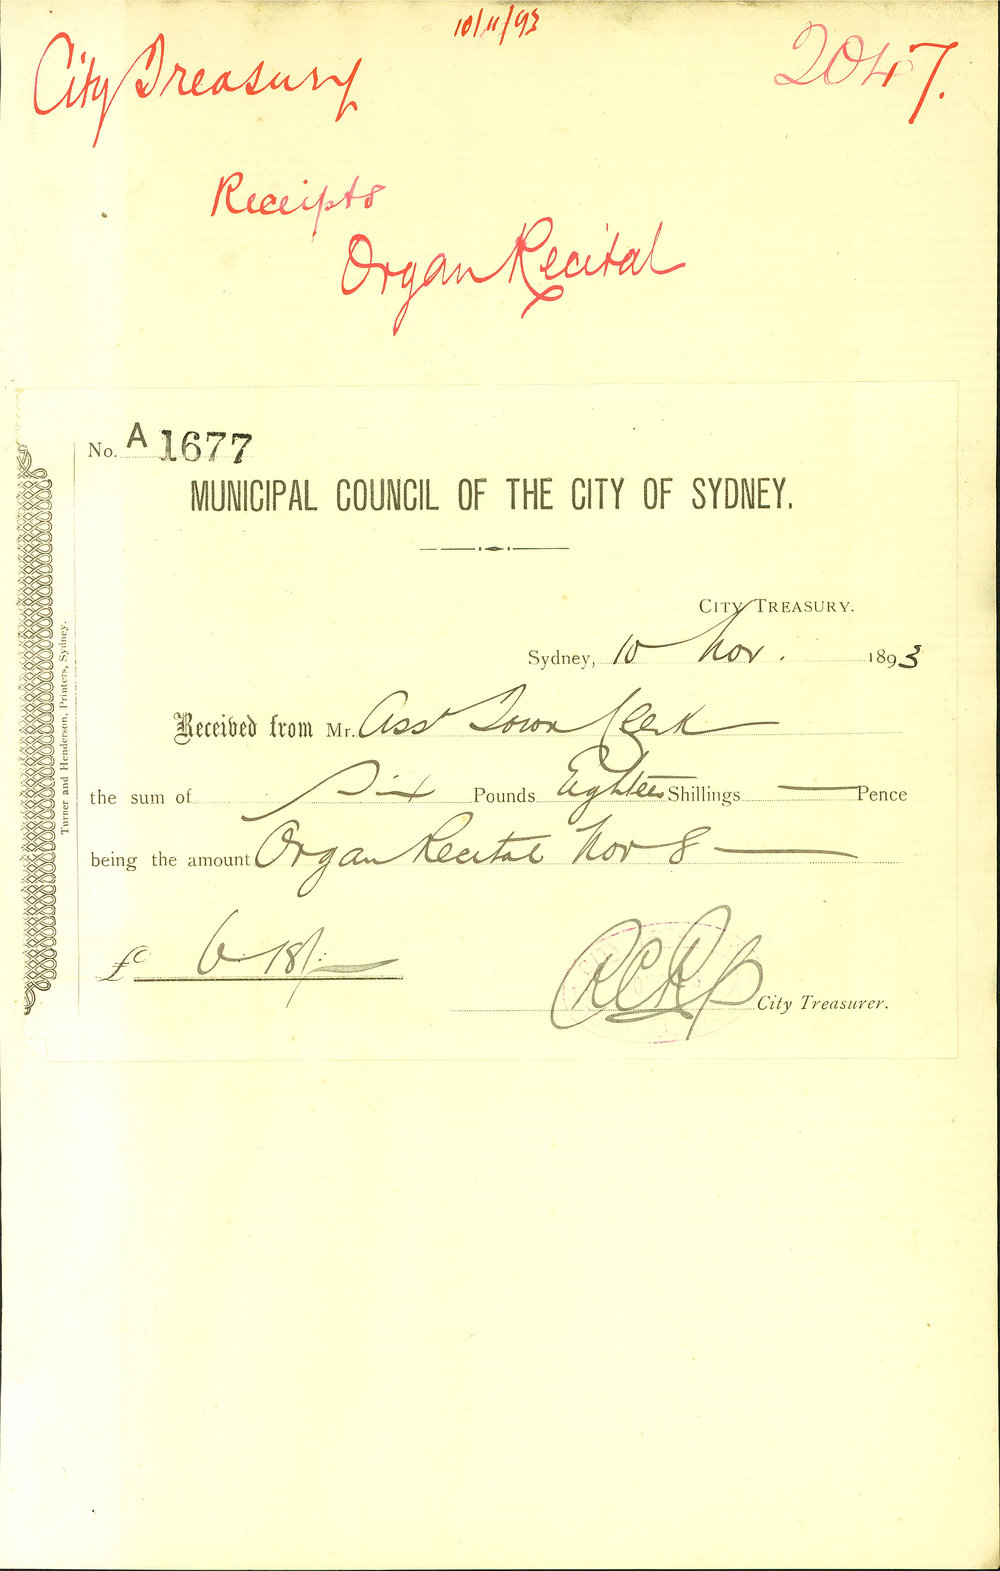 10/11/93
City Treasury
2047.
Receipts
Organ Recital
No. A 1677
MUNICIPAL COUNCIL OF THE CITY OF SYDNEY.
CITY TREASURY.
Sydney, 10 Nov. 1893
Received from Mr. Asst Town Clerk
the sum of Six Pounds Eighteen Shillings — Pence
being the amount Organ Recital Nov 8 —
£ 6-18/-
City Treasurer.
Turner and Henderson, Printers, Sydney.